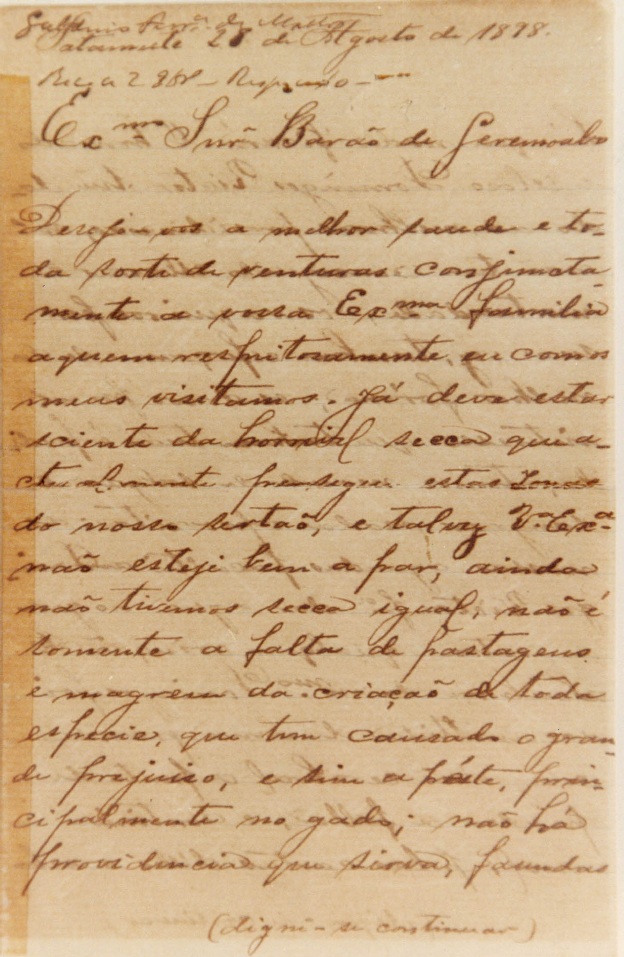 de
Patamuté 28 de Agosto de 1898.
Exmo Snr Barão de Geremoabo
Desejo vos a melhor saude e to-
da sorte de venturas conjuncta
mente a vossa Exma familia
aquem respeitosamente eu com os
meus visitamos. Já deve estar
sciente da horrivel secca que a-
ctualmente persegue estas zonas
do nosso sertão, e talvez Va Exa
não esteje bem a par, ainda
não tivemos secca igual, não é
somente a falta de pastagens
e magrem da criação de toda
especie, que tem causado o gran-
de prejuiso, e sim a péste, prin-
cipalmente no gado; não há
providencia que sirva, faendas
(digni-se continuar)